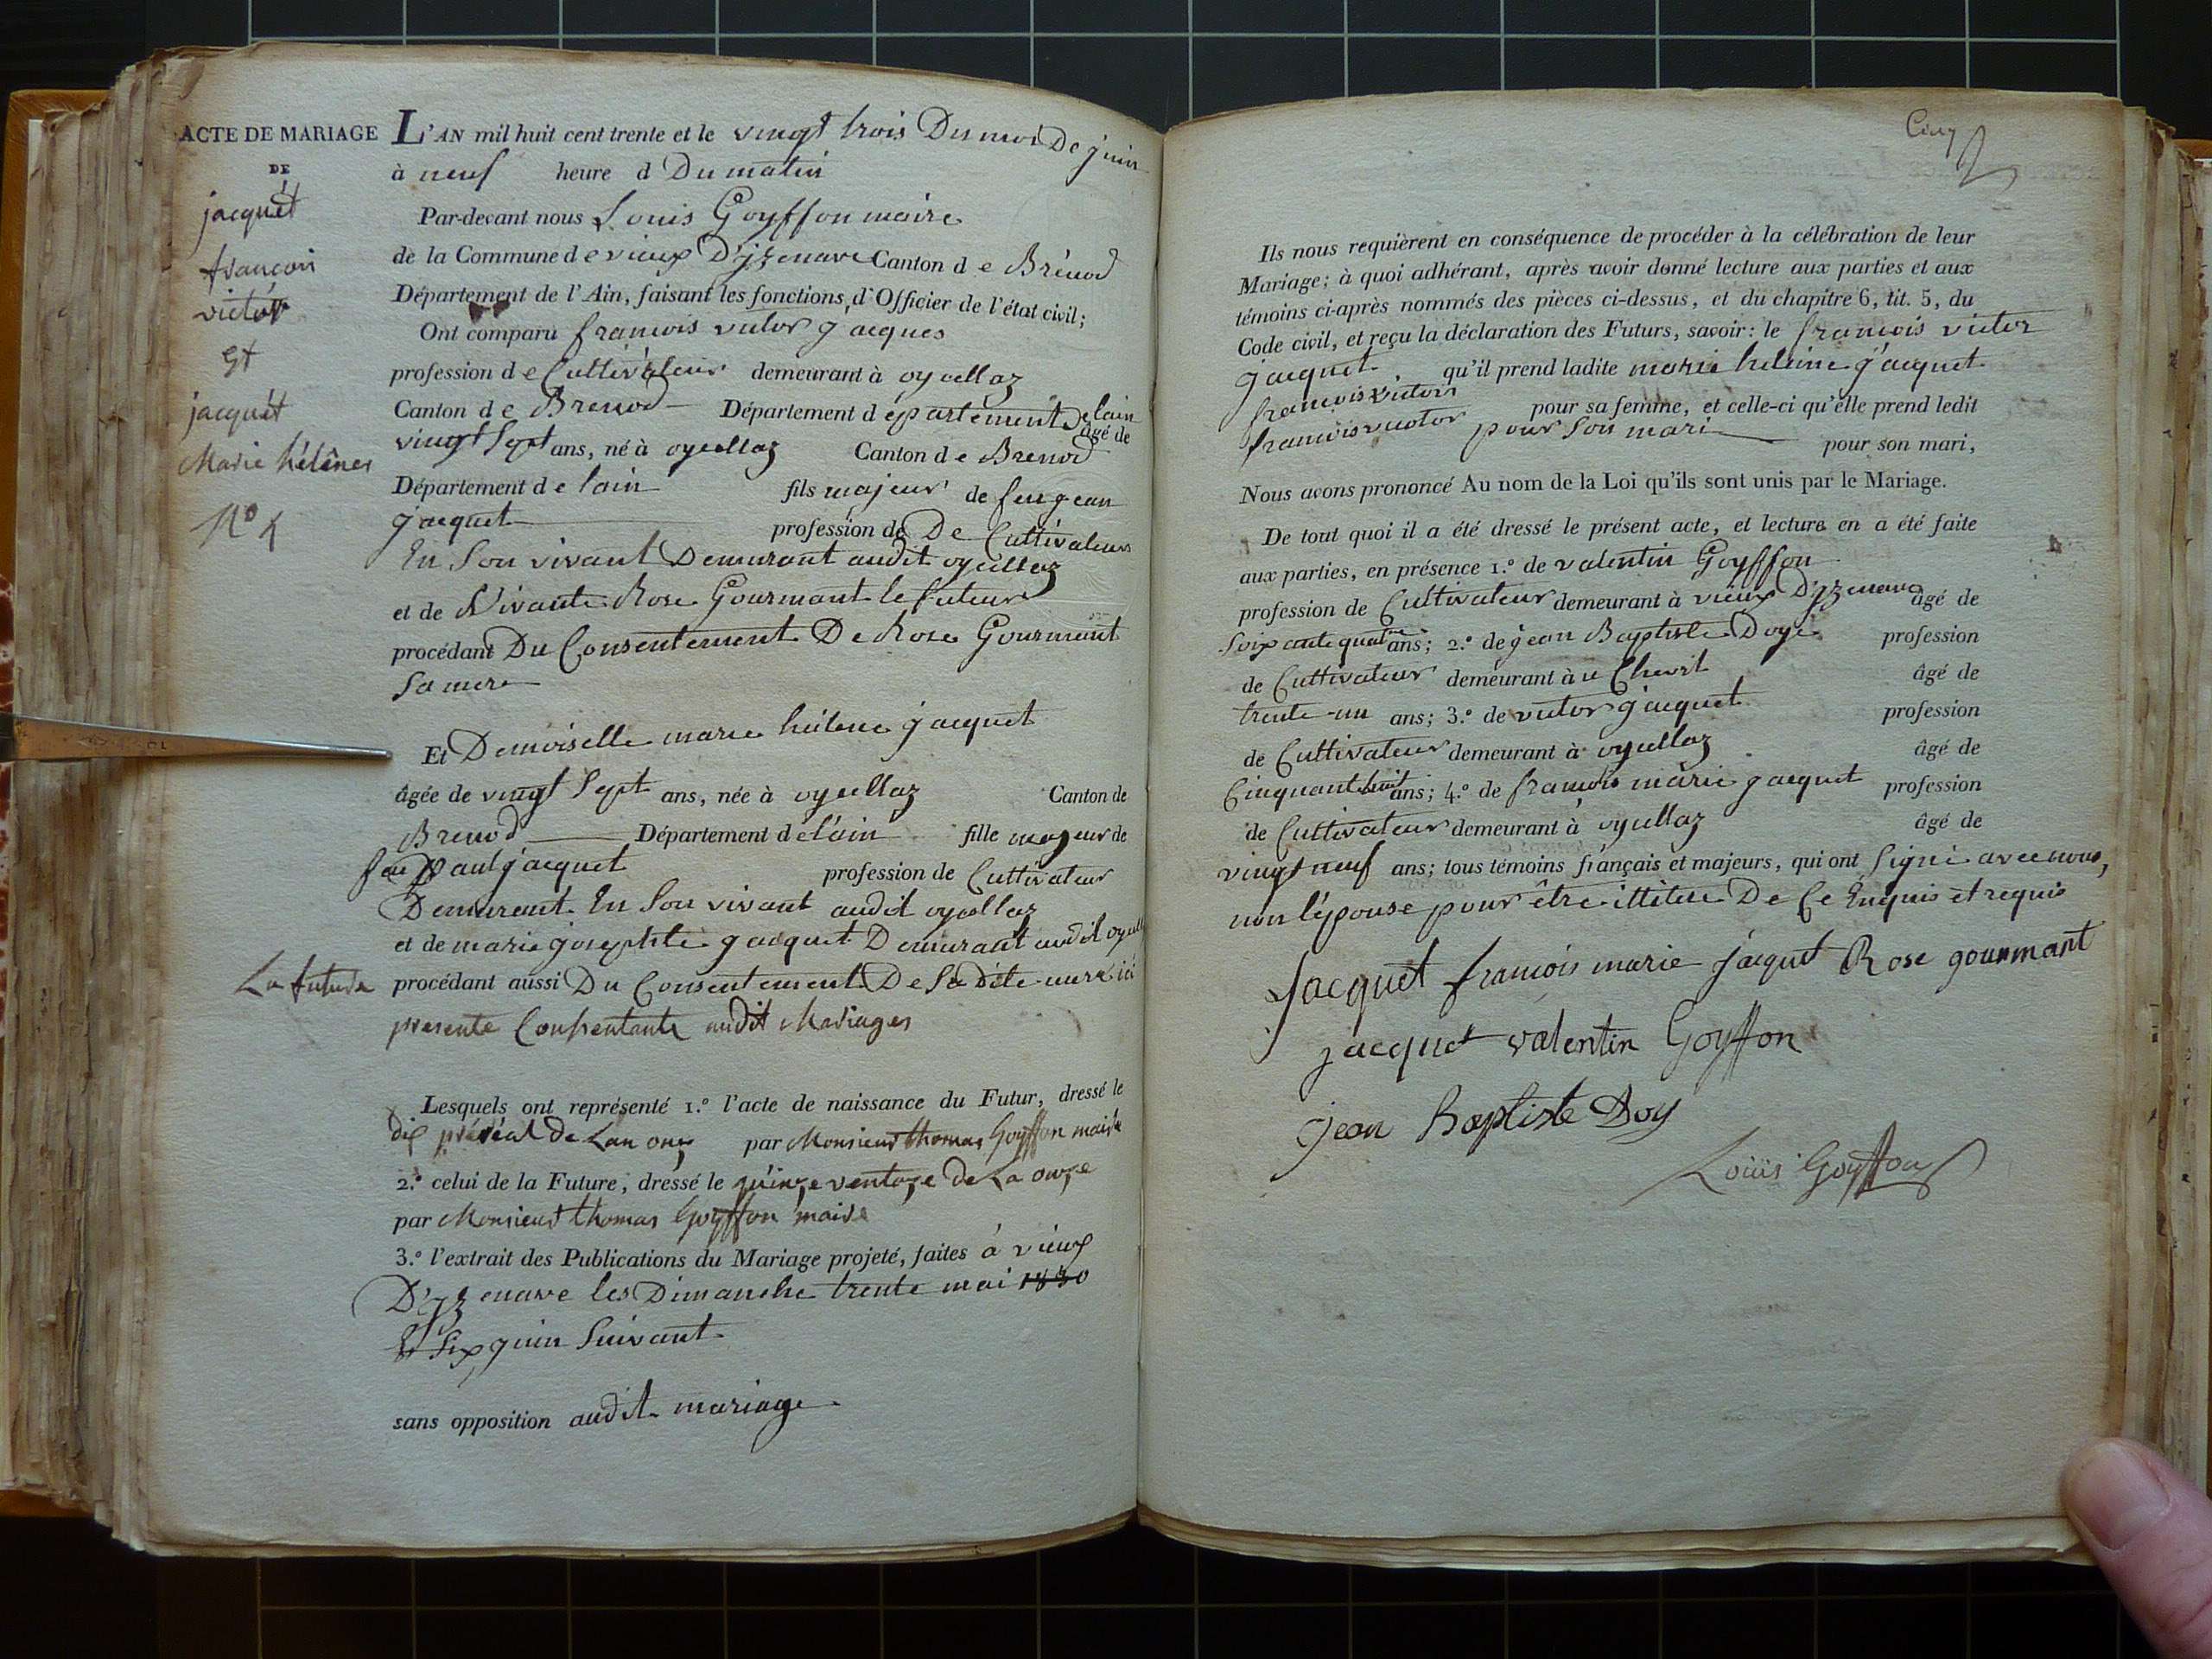 ACTE DE MARIAGE
DE
jacquét
françoi
victor
Et
jacquét
Marie hélênes
N° 4
La future
L'AN mil huit cent trente et le vingt trois Du moi De juin
à neuf heure d Du matin
Par-devant nous Louis Goyffon maire
de la Commune de vieux D'jzenave Canton de Brénod
Département de l'Ain, faisant les fonctions d'Officier de l'état civil;
Ont comparu francois victor jacques
profession de Cultivateur demeurant à oyeellaz
Canton de Brenod Département département De lain
âgé de
vingt Sept ans, né à oyeellaz Canton de Brenod
Département de lain fils majeur de feu jean
jacquet profession de De Cultivateur
En Son vivant Demurant audit oyeellaz
et de Vivante Rose Gourmant le futeur
procédant Du Consentement De Rose Gourmant
Sa mere
Et Demoiselle marie hélene jacquet
âgée de vingt Sept ans, née à oyeellaz Canton de
Brenod Département de lain fille majeur de
feu paul jacquet profession de Cultivateur
Demurent En Son vivant audit oyeellaz
et de marie josephte jacquet Demurant audit
procédant aussi Du Consentement De Sa dite mere ici
presente Consentante audit Mariages
Lesquels ont représenté 1.° l'acte de naissance du Futur, dressé le
dix préréal De Lan onz par Monsieur thomas Goyffon maire
2.° celui de la Future, dressé le quinze ventoze De La onze
par Monsieur thomas Goyffon maire
3.° l'extrait des Publications du Mariage projeté, faites à vieux
D'jzenave les Dimanche trente mai 1830
& Six juin Suivant
sans opposition audit mariage
Cinq
Ils nous requièrent en conséquence de procéder à la célébration de leur
Mariage; à quoi adhérant, après avoir donné lecture aux parties et aux
témoins ci-après nommés des pièces ci-dessus, et du chapitre 6, tit. 5, du
Code civil, et reçu la déclaration des Futurs, savoir: le francois victor
jacquet qu'il prend ladite marie heleine jacquet
francois victor pour sa femme, et celle-ci qu'elle prend ledit
francois victor pour Son mari pour son mari,
Nous avons prononcé Au nom de la Loi qu'ils sont unis par le Mariage.
De tout quoi il a été dressé le présent acte, et lecture en a été faite
aux parties, en présence 1.° de valentin Goyffon
profession de Cultivateur demeurant à vieux D'jzenave âgé de
Soixante quatre ans; 2.° de jean Baptiste Doye profession
de Cultivateur demeurant à u Chevril âgé de
trente-un ans; 3.° de victor jacquet profession
de Cultivateur demeurant à oyeellaz âgé de
Cinquant huit ans; 4.° de francois marie jacquet profession
de Cultivateur demeurant à oyeellaz âgé de
vingt neuf ans; tous témoins français et majeurs, qui ont Signé avec nous,
non l'épouse pour être illitéré De Ce Enquis et requis
Jacquet francois marie jacquet Rose gourmant
jacquet valentin Goyffon
jean Baptiste Doy
Loüis Goyffon